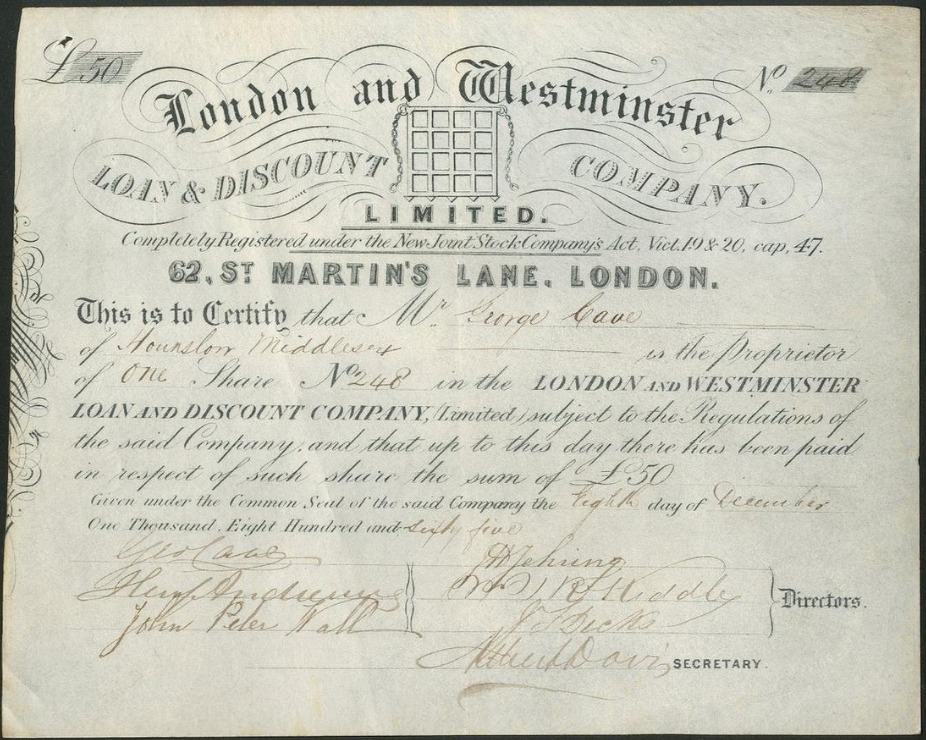 £50 No. 248
London and Westminster
LOAN & DISCOUNT COMPANY.
LIMITED.
Completely Registered under the New Joint Stock Company's Act, Vict. 19 & 20, cap, 47.
62, ST MARTIN'S LANE, LONDON.
This is to Certify that Mr George Cave
of Hounslow Middlesex is the Proprietor
of One Share No 248 in the LONDON AND WESTMINSTER
LOAN AND DISCOUNT COMPANY, (Limited) subject to the Regulations of
the said Company, and that up to this day there has been paid
in respect of such share the sum of £50
Given under the Common Seal of the said Company the Eighth day of December
One Thousand, Eight Hundred and sixty five
Geo Cave
Henry Andrews
John Peter Wall
Directors.
SECRETARY.